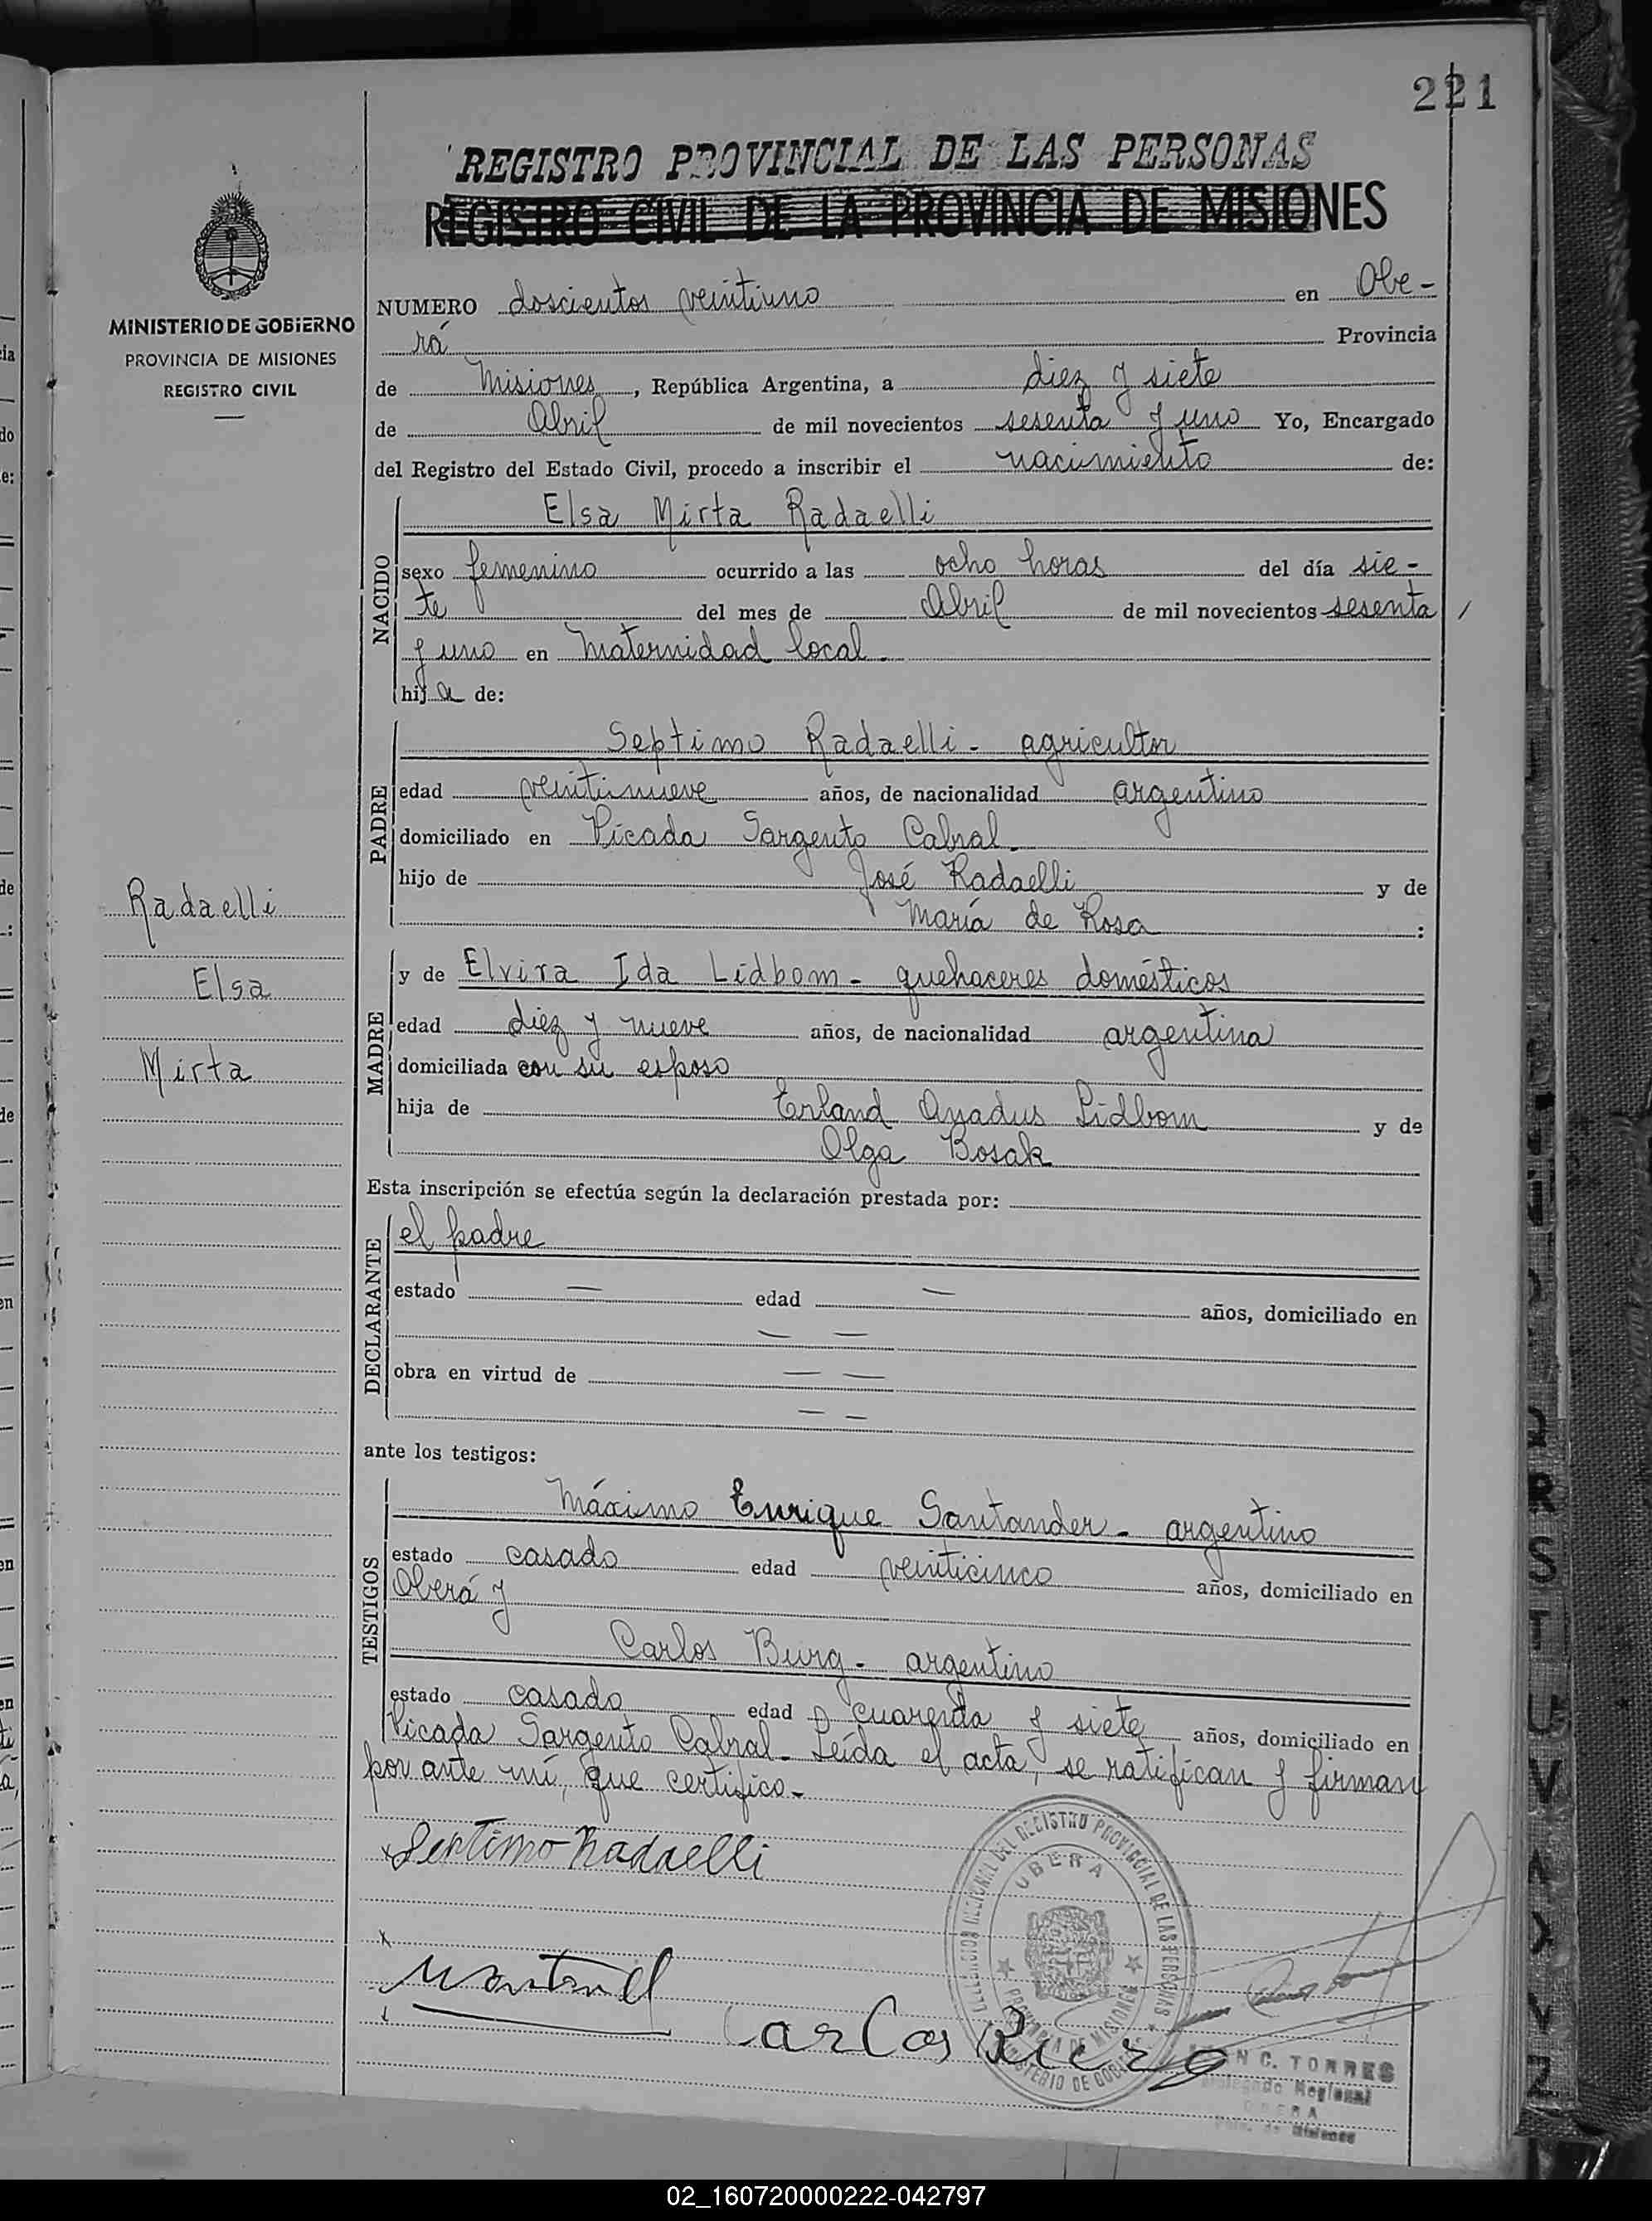 221
REGISTRO PROVINCIAL DE LAS PERSONAS
REGISTRO CIVIL DE LA PROVINCIA DE MISIONES
MINISTERIO DE GOBIERNO
PROVINCIA DE MISIONES
REGISTRO CIVIL
NUMERO doscientos veintiuno en Obe-
rá Provincia
de Misiones, República Argentina, a diez y siete
de Abril de mil novecientos sesenta y uno Yo, Encargado
del Registro del Estado Civil, procedo a inscribir el nacimiento de:
NACIDO
Elsa Mirta Radaelli
sexo femenino ocurrido a las ocho horas del día sie-
te del mes de Abril de mil novecientos sesenta
y uno en Maternidad local.
hija de:
PADRE
Septimo Radaelli - agricultor
edad veintinueve años, de nacionalidad argentino
domiciliado en Picada Sargento Cabral.
hijo de José Radaelli y de
María de Rosa :
Radaelli
Elsa
Mirta
MADRE
y de Elvira Ida Lidbom - quehaceres domésticos
edad diez y nueve años, de nacionalidad argentina
domiciliada con su esposo
hija de Erland Lidbom y de
Olga Bosak
Esta inscripción se efectúa según la declaración prestada por:
DECLARANTE
el padre
estado — edad — años, domiciliado en
— —
obra en virtud de — —
— —
ante los testigos:
TESTIGOS
Máximo Enrique Santander - argentino
estado casado edad veinticinco años, domiciliado en
Oberá y
Carlos Burg - argentino
estado casado edad cuarenta y siete años, domiciliado en
Picada Sargento Cabral - Leída el acta, se ratifican y firman
por ante mí, que certifico.-
Septimo Radaelli
Carlos Burg
DEL REGISTRO PROVINCIAL DE LAS PERSONAS
OBERA
PROVINCIA DE MISIONES
MINISTERIO DE GOBIERNO
C. TORRES
Delegado Regional
OBERA
de Misiones
R
S
T
U
V
Z
02_160720000222-042797